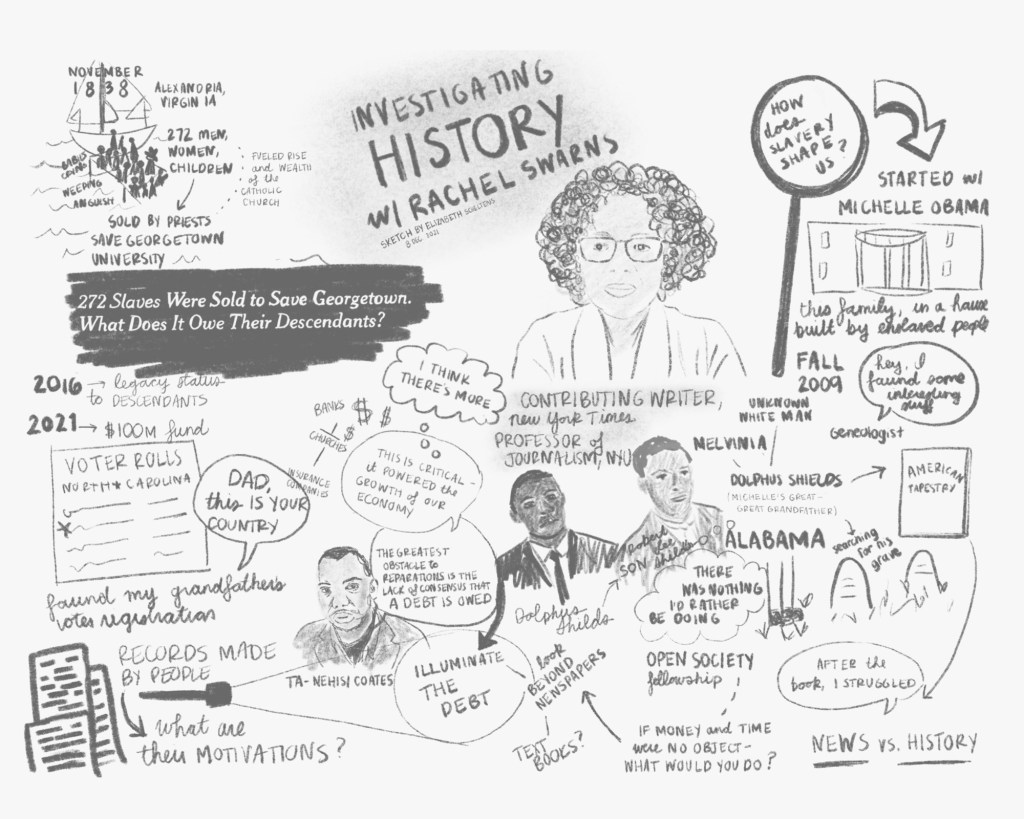 NOVEMBER
1838
ALEXANDRIA,
VIRGINIA
272 MEN,
WOMEN,
CHILDREN
BABIES
CRYING
WEEPING
ANGUISH
• FUELED RISE
• and WEALTH
• of the
• CATHOLIC
CHURCH
SOLD BY PRIESTS
SAVE GEORGETOWN
UNIVERSITY
INVESTIGATING
HISTORY
W/ RACHEL SWARNS
SKETCH BY ELIZABETH SCHELTENS
8 DEC. 2021
HOW
does
SLAVERY
SHAPE
US?
STARTED W/
MICHELLE OBAMA
this family, in a house
built by enslaved people
272 Slaves Were Sold to Save Georgetown.
What Does It Owe Their Descendants?
2016 → legacy status
to DESCENDANTS
2021 → $100M fund
VOTER ROLLS
NORTH ★ CAROLINA
DAD,
this IS YOUR
COUNTRY
found my grandfather's
votes registration
I THINK
THERE'S MORE
BANKS
$ $ $
CHURCHES
INSURANCE
COMPANIES
THIS IS CRITICAL-
it POWERED the
GROWTH OF OUR
ECONOMY
THE GREATEST
OBSTACLE to
REPARATIONS IS THE
LACK of CONSENSUS THAT
A DEBT IS OWED
TA-NEHISI COATES
CONTRIBUTING WRITER,
new York Times
PROFESSOR of
JOURNALISM, NYU
FALL
2009
hey, I
found some
interesting
stuff
Geneologist
UNKNOWN
WHITE MAN
MELVINIA
DOLPHUS SHIELDS
(MICHELLE'S GREAT-
GREAT GRANDFATHER)
AMERICAN
TAPESTRY
ALABAMA
searching
for his
grave
Robert
Lee
SON Shields
Dolphus
Shields
THERE
WAS NOTHING
I'D RATHER
BE DOING
AFTER the
book, I STRUGGLED
NEWS vs. HISTORY
OPEN SOCIETY
fellowship
IF MONEY and TIME
were NO OBJECT-
WHAT WOULD YOU DO?
look
BEYOND
NEWSPAPERS
TEXT
BOOKS?
ILLUMINATE
THE
DEBT
RECORDS MADE
BY PEOPLE
what are
their MOTIVATIONS?